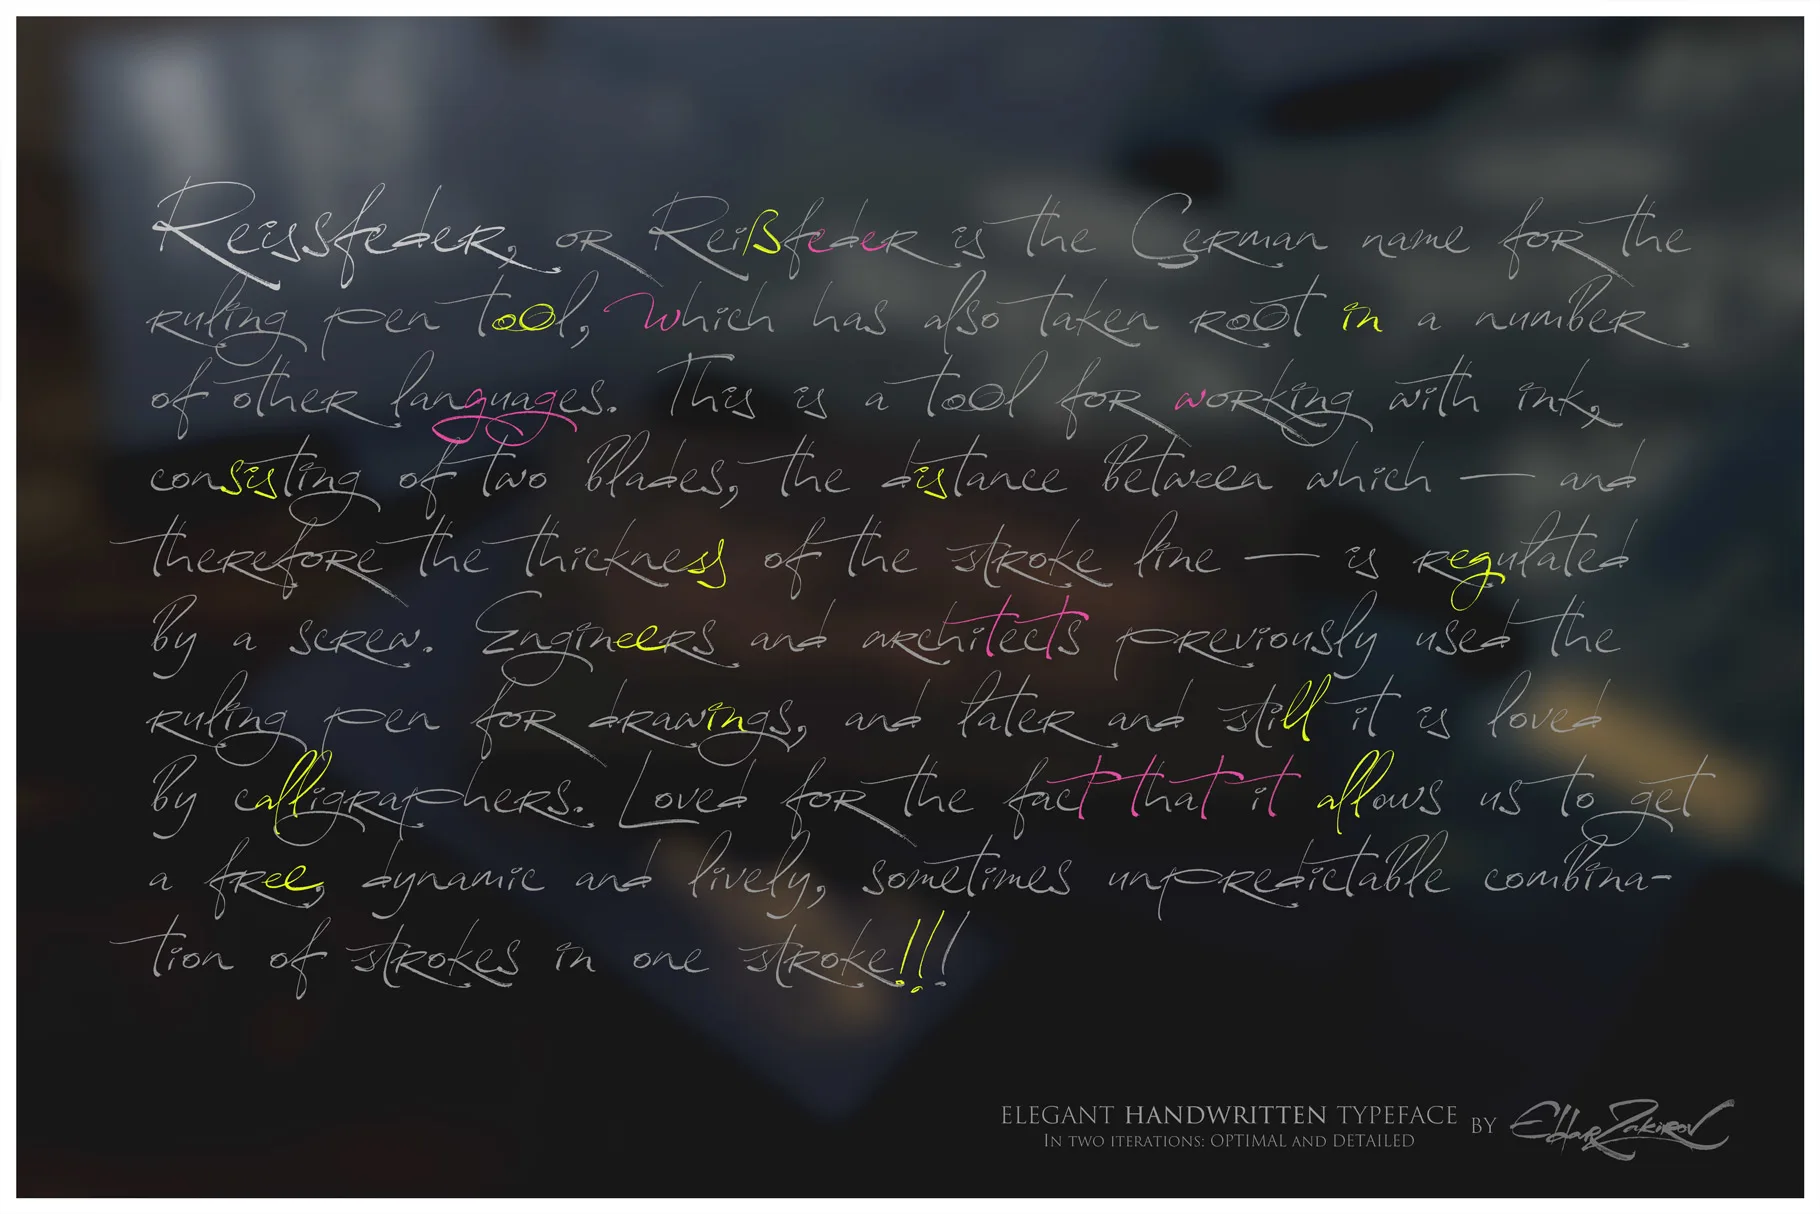 Reissfeder, or Reißfeder is the German name for the
ruling pen tool, which has also taken root in a number
of other languages. This is a tool for working with ink,
consisting of two blades, the distance between which — and
therefore the thickness of the stroke line — is regulated
by a screw. Engineers and architects previously used the
ruling pen for drawings, and later and still it is loved
by calligraphers. Loved for the fact that it allows us to get
a free, dynamic and lively, sometimes unpredictable combina-
tion of strokes in one stroke!!!
ELEGANT HANDWRITTEN TYPEFACE BY Eldar Zakirov
IN TWO ITERATIONS: OPTIMAL AND DETAILED